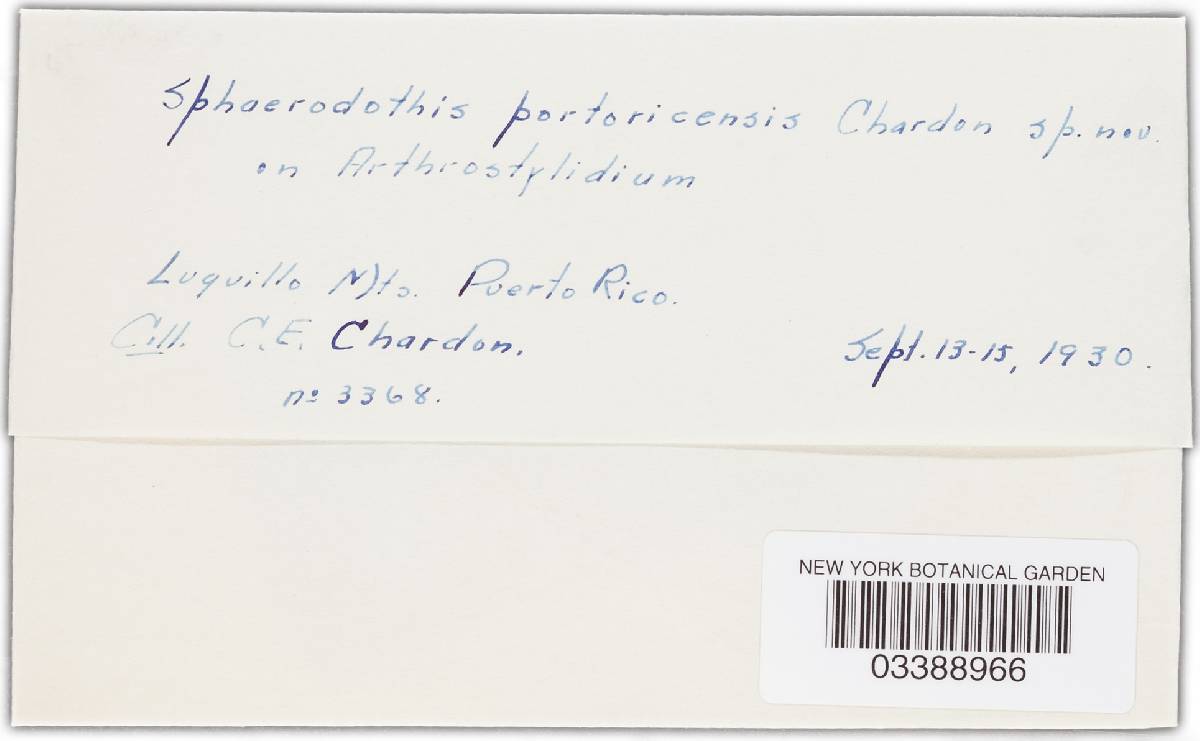 Sphaerodothis portoricensis Chardon sp. nov.
on Arthrostylidium
Luquillo Mts. Puerto Rico.
Coll. C.E. Chardon. Sept. 13-15, 1930.
no 3368.
NEW YORK BOTANICAL GARDEN
03388966